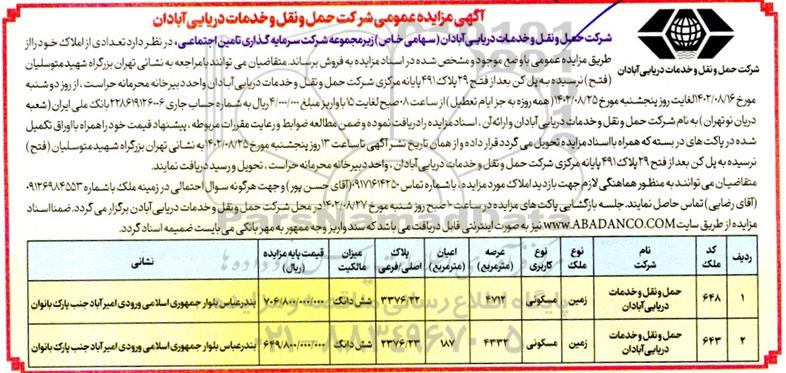 آگهی مزایده عمومی شرکت حمل و نقل و خدمات دریایی آبادان
شرکت حمل و نقل و خدمات دریایی آبادان
شرکت حمل و نقل و خدمات دریایی آبادان (سهامی خاص) زیرمجموعه شرکت سرمایه گذاری تامین اجتماعی، در نظر دارد تعدادی از املاک خود را از
طریق مزایده عمومی با وضع موجود و مشخص شده در اسناد مزایده به فروش برساند. متقاضیان می توانند با مراجعه به نشانی تهران بزرگراه شهید متوسلیان
(فتح) نرسیده به پل کن بعد از فتح ۲۹ پلاک ۴۹۱ پایانه مرکزی شرکت حمل و نقل و خدمات دریایی آبادان واحد دبیرخانه محرمانه حراست، از روز دوشنبه
مورخ ۱۴۰۲/۰۸/۱۶ لغایت روز پنجشنبه مورخ ۱۴۰۲/۰۸/۲۵ (همه روزه به جز ایام تعطیل) از ساعت ۰۸ صبح لغایت ۱۵ با واریز مبلغ ۴/۰۰۰/۰۰۰ ریال به شماره حساب جاری ۲۲۸۶۱۹۱۲۶۰۰۶ بانک ملی ایران (شعبه
دریان نو تهران) به نام شرکت حمل و نقل و خدمات دریایی آبادان و ارائه آن، اسناد مزایده را دریافت نموده و ضمن مطالعه ضوابط و رعایت مقررات مربوطه، پیشنهاد قیمت خود را همراه با اوراق تکمیل
شده در پاکت های در بسته که همراه با اسناد مزایده تحویل می گردد قرار داده و از همان تاریخ نشر آگهی تا ساعت ۱۳ روز پنجشنبه مورخ ۱۴۰۲/۰۸/۲۵ به نشانی تهران بزرگراه شهید متوسلیان (فتح)
نرسیده به پل کن بعد از فتح ۲۹ پلاک ۴۹۱ پایانه مرکزی شرکت حمل و نقل و خدمات دریایی آبادان، واحد دبیرخانه محرمانه حراست، تحویل و رسید دریافت نمایند.
متقاضیان می توانند به منظور هماهنگی لازم جهت بازدید املاک مورد مزایده، با شماره تماس ۰۹۱۷۱۶۱۴۲۵۰ (آقای حسن پور) و جهت هرگونه سوال احتمالی در زمینه ملک با شماره ۰۹۱۲۶۹۸۴۵۵۳
(آقای رضایی) تماس حاصل نمایند. جلسه بازگشایی پاکت های مزایده در ساعت ۱۰ صبح روز شنبه مورخ ۱۴۰۲/۰۸/۲۷ در محل شرکت حمل و نقل و خدمات دریایی آبادن برگزار می گردد. ضمنا اسناد
مزایده از طریق سایت WWW.ABADANCO.COM نیز به صورت اینترنتی قابل دریافت می باشد که سند واریز وجه ممهور به مهر بانکی می بایست ضمیمه اسناد گردد.
ردیف کد ملک نام شرکت نوع ملک نوع کاربری عرصه (مترمربع) اعیان (مترمربع) پلاک اصلی/فرعی میزان مالکیت قیمت پایه مزایده (ریال) نشانی
۱ ۶۴۸ حمل و نقل و خدمات دریایی آبادان زمین مسکونی ۴۷۱۲ - ۳۳۷۶/۲۲ شش دانگ ۷۰۶/۸۰۰/۰۰۰/۰۰۰ بندرعباس بلوار جمهوری اسلامی ورودی امیر آباد جنب پارک بانوان
۲ ۶۴۳ حمل و نقل و خدمات دریایی آبادان زمین مسکونی ۴۳۳۲ ۱۸۷ ۲۳۷۶/۲۳ شش دانگ ۶۴۹/۸۰۰/۰۰۰/۰۰۰ بندرعباس بلوار جمهوری اسلامی ورودی امیر آباد جنب پارک بانوان
ParsNamadData
۰۲۱-۸۸۳۴۹۶۷۰-۵